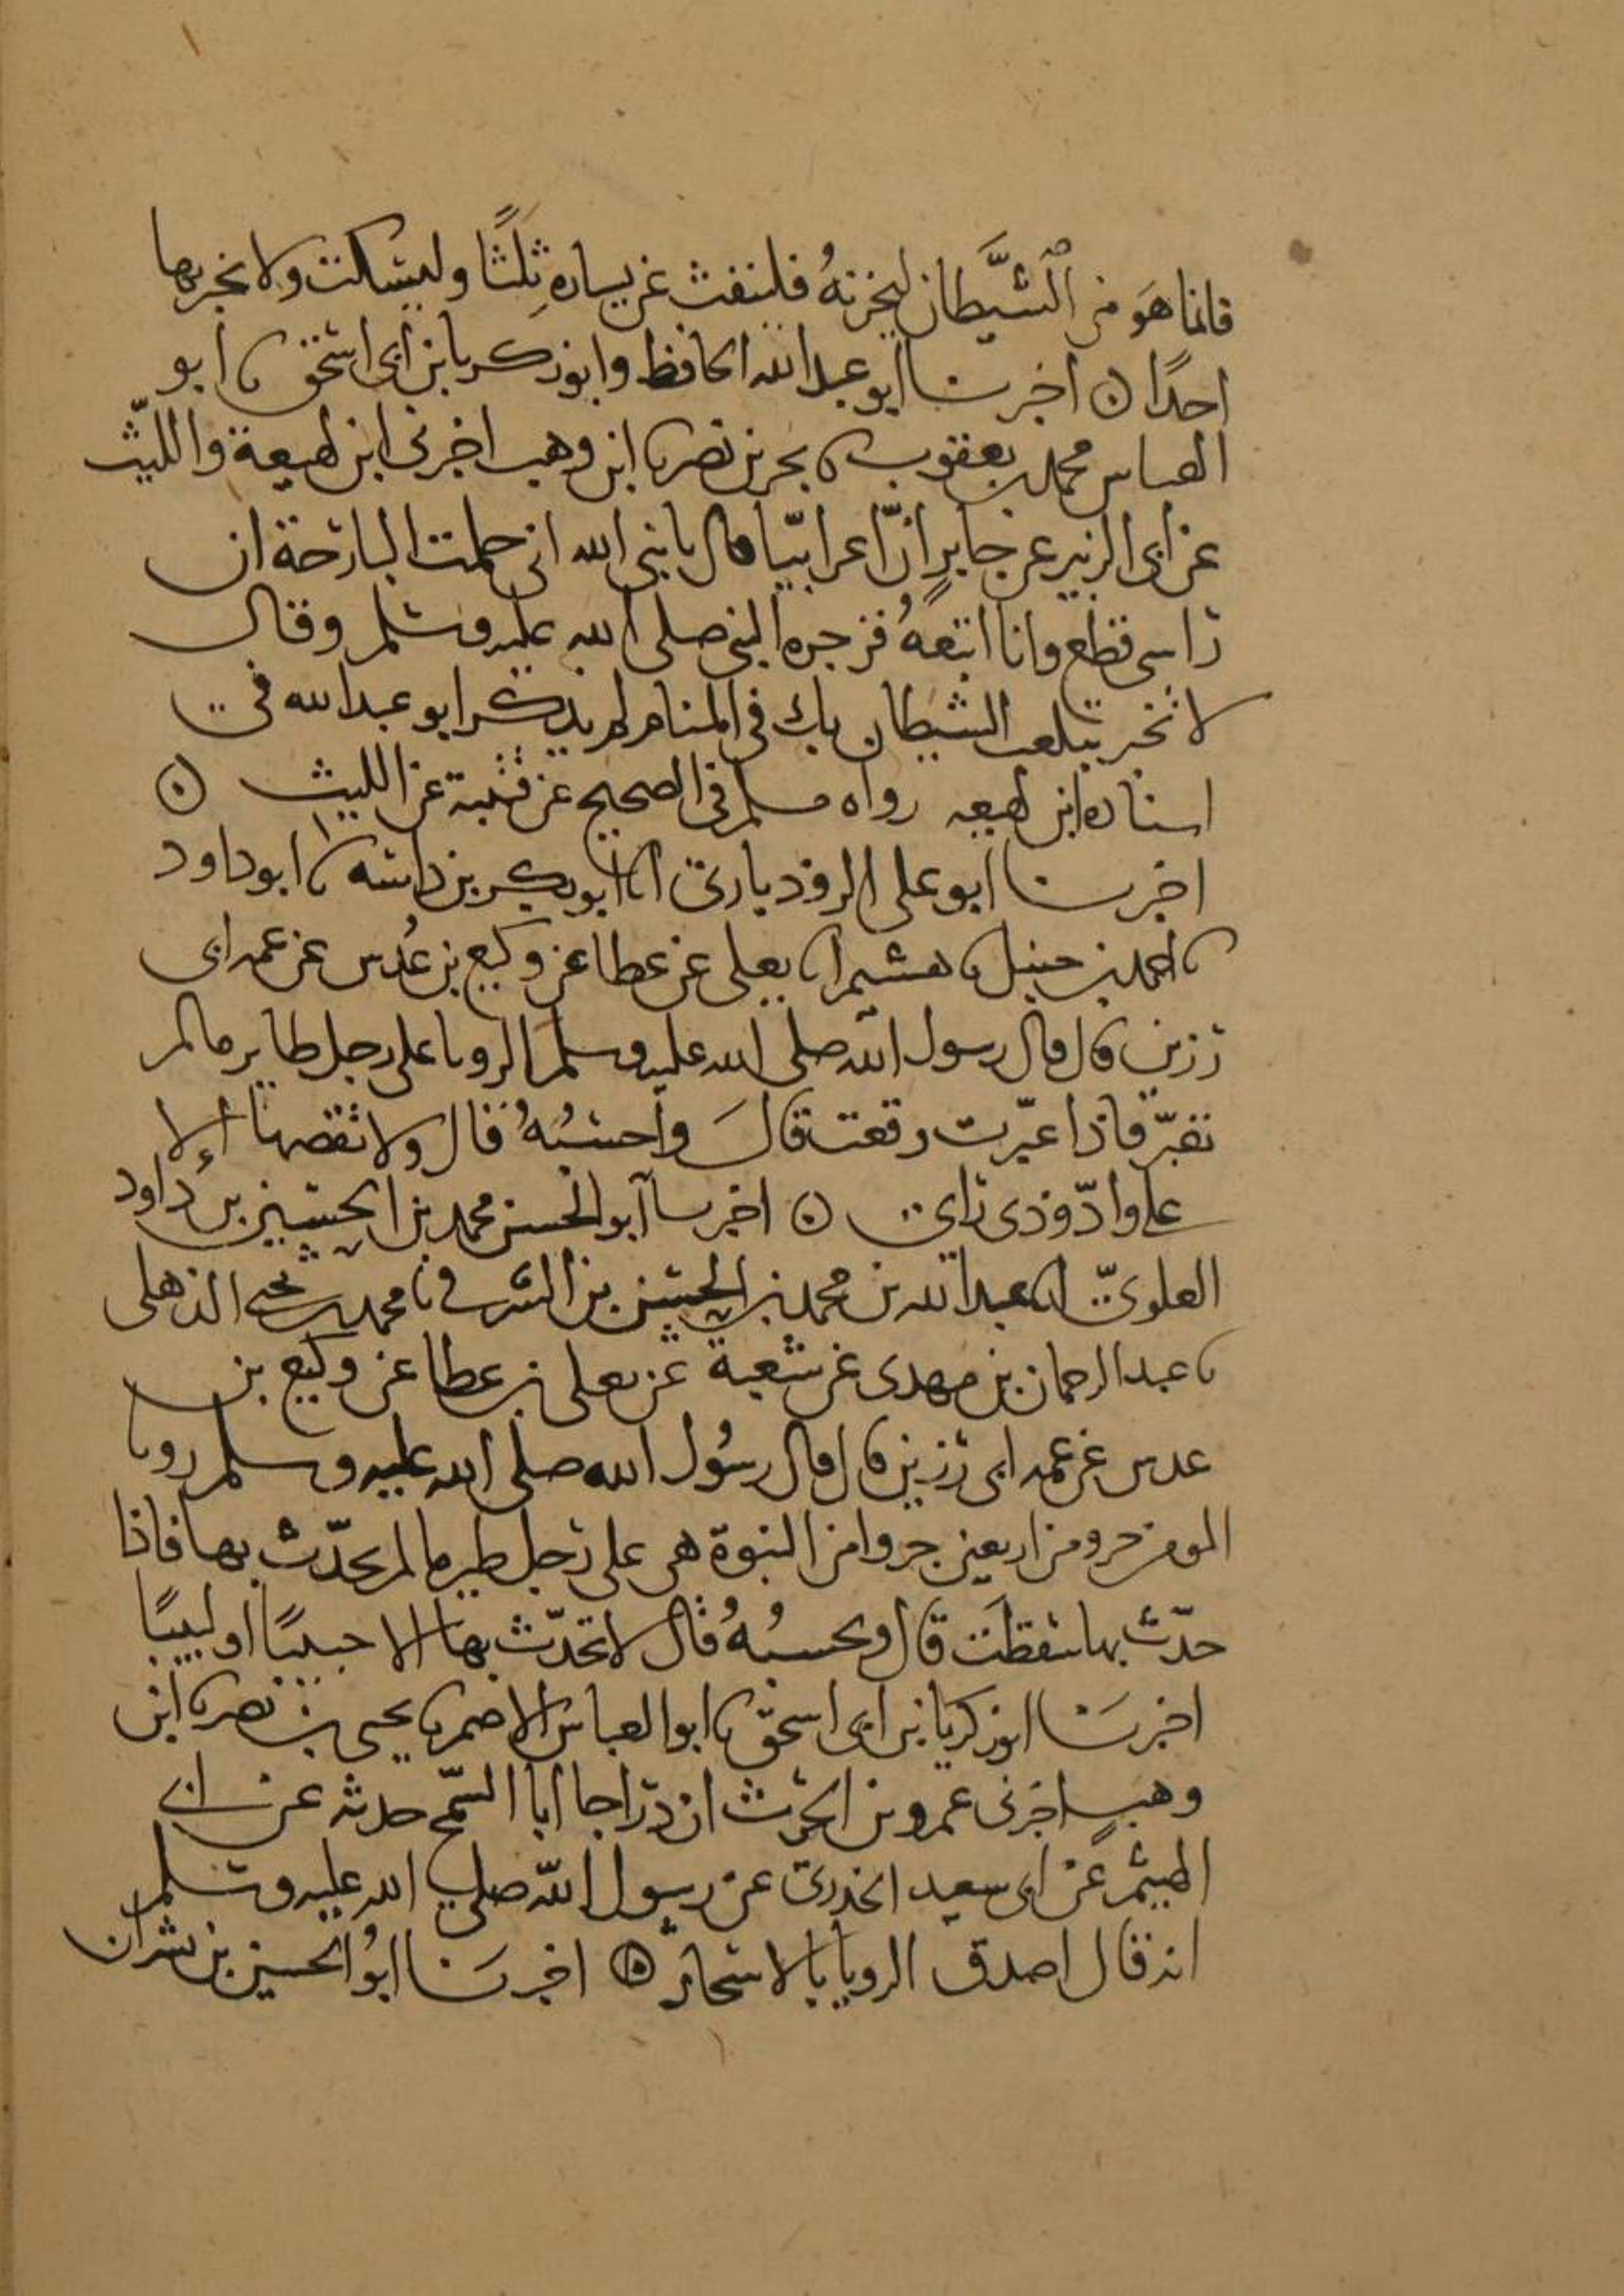 فانما هو من الشيطان ليحزنه فلينفث عن يساره ثلثا وليسكت ولا يخبر بها
احدا ۝ اخبرنا ابو عبد الله الحافظ وابو زكريا بن ابي اسحق نا ابو
العباس محمد بن يعقوب نا بحر بن نصر نا ابن وهب اخبرني ابن لهيعة والليث
عن ابي الزبير عن جابر انّ اعرابيّا قال يا نبي الله اني حلمت البارحة ان
راسي قطع وانا اتبعه فزجره النبي صلى الله عليه وسلم وقال
لا تخبر بتلعب الشيطان بك في المنام لم يذكر ابو عبد الله في
اسناده ابن لهيعه رواه مسلم في الصحيح عن قتيبة عن الليث ۝
اخبرنا ابو علي الروذباري انا ابو بكر بن داسه نا ابو داود
نا احمد بن حنبل نا هشيم انا يعلى عن عطا عن وكيع بن عُدس عن عمه ابي
رزين قال قال رسول الله صلى الله عليه وسلم الرويا على رجل طاير ما لم
تعبّر فاذا عبّرت وقعت قالَ واحسبُهُ قال ولا تقصها إلا
على وادّ وذي راي ۝ اخبرنا ابو الحسن محمد بن الحسين بن داود
العلويّ انا عبد الله بن محمد بن الحسن بن الشرقي نا محمد بن يحيى الذهلي
نا عبد الرحمان بن مهدي عن شعبة عن يعلى بن عطا عن وكيع بن
عدس عن عمه ابي رزين قال قال رسُول الله صلى الله عليه وسلم رويا
المومن جزو من اربعين جزوا من النبوة هي على رجل طير ما لم يحدّث بها فاذا
حدّث بها سقطت قال وحسبُهُ قال لا تحدّث بها الا حبيبًا او لبيبًا
اخبرنا ابو زكريا بن ابي اسحق نا ابو العباس الاصم نا يحيى بن نصر نا ابن
وهب اخبرني عمرو بن الحرث ان درّاجا ابا السّمح حدثه عن ابي
الهيثم عن ابي سعيد الخدري عن رسول الله صلى الله عليه وسلم
انه قال اصدق الرويا بالاسحار ۝ اخبرنا ابُو الحسين بن بشران